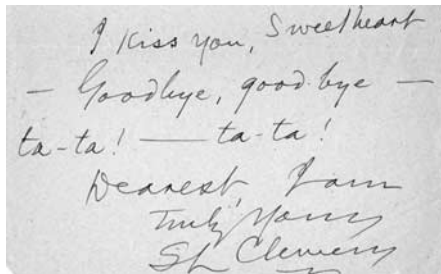 I kiss you, Sweetheart
— Goodbye, good-bye —
ta-ta! — ta-ta!
Dearest, I am
Truly Yours
SL Clemens